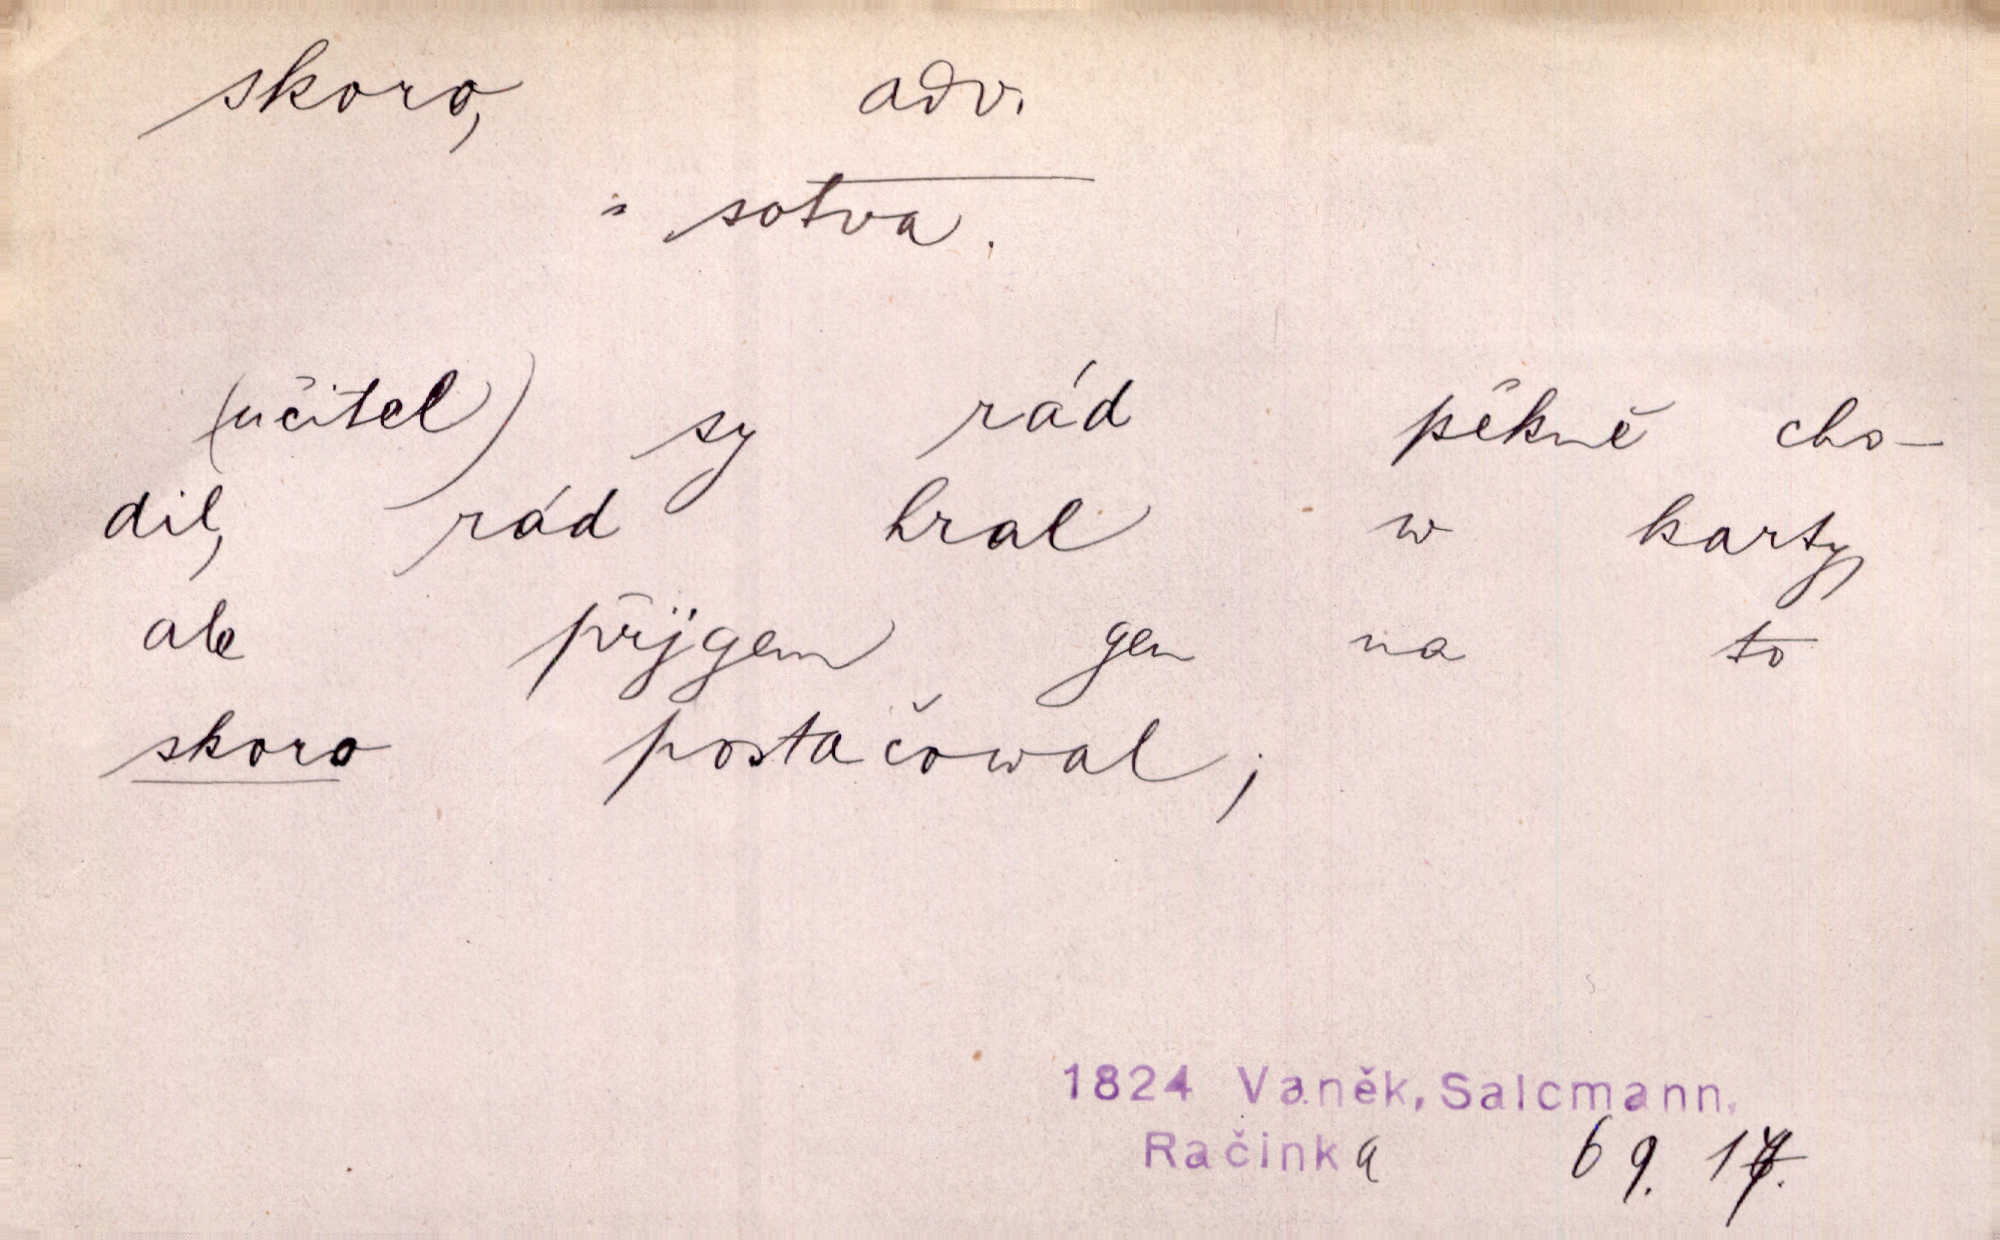 skoro, adv.
= sotva.
(učitel) sy rád pěkně cho-
dil, rád hral w karty,
ale přjgem gen na to
skoro postačowal;
1824 Vaněk, Salcmann,
Račinka 69.